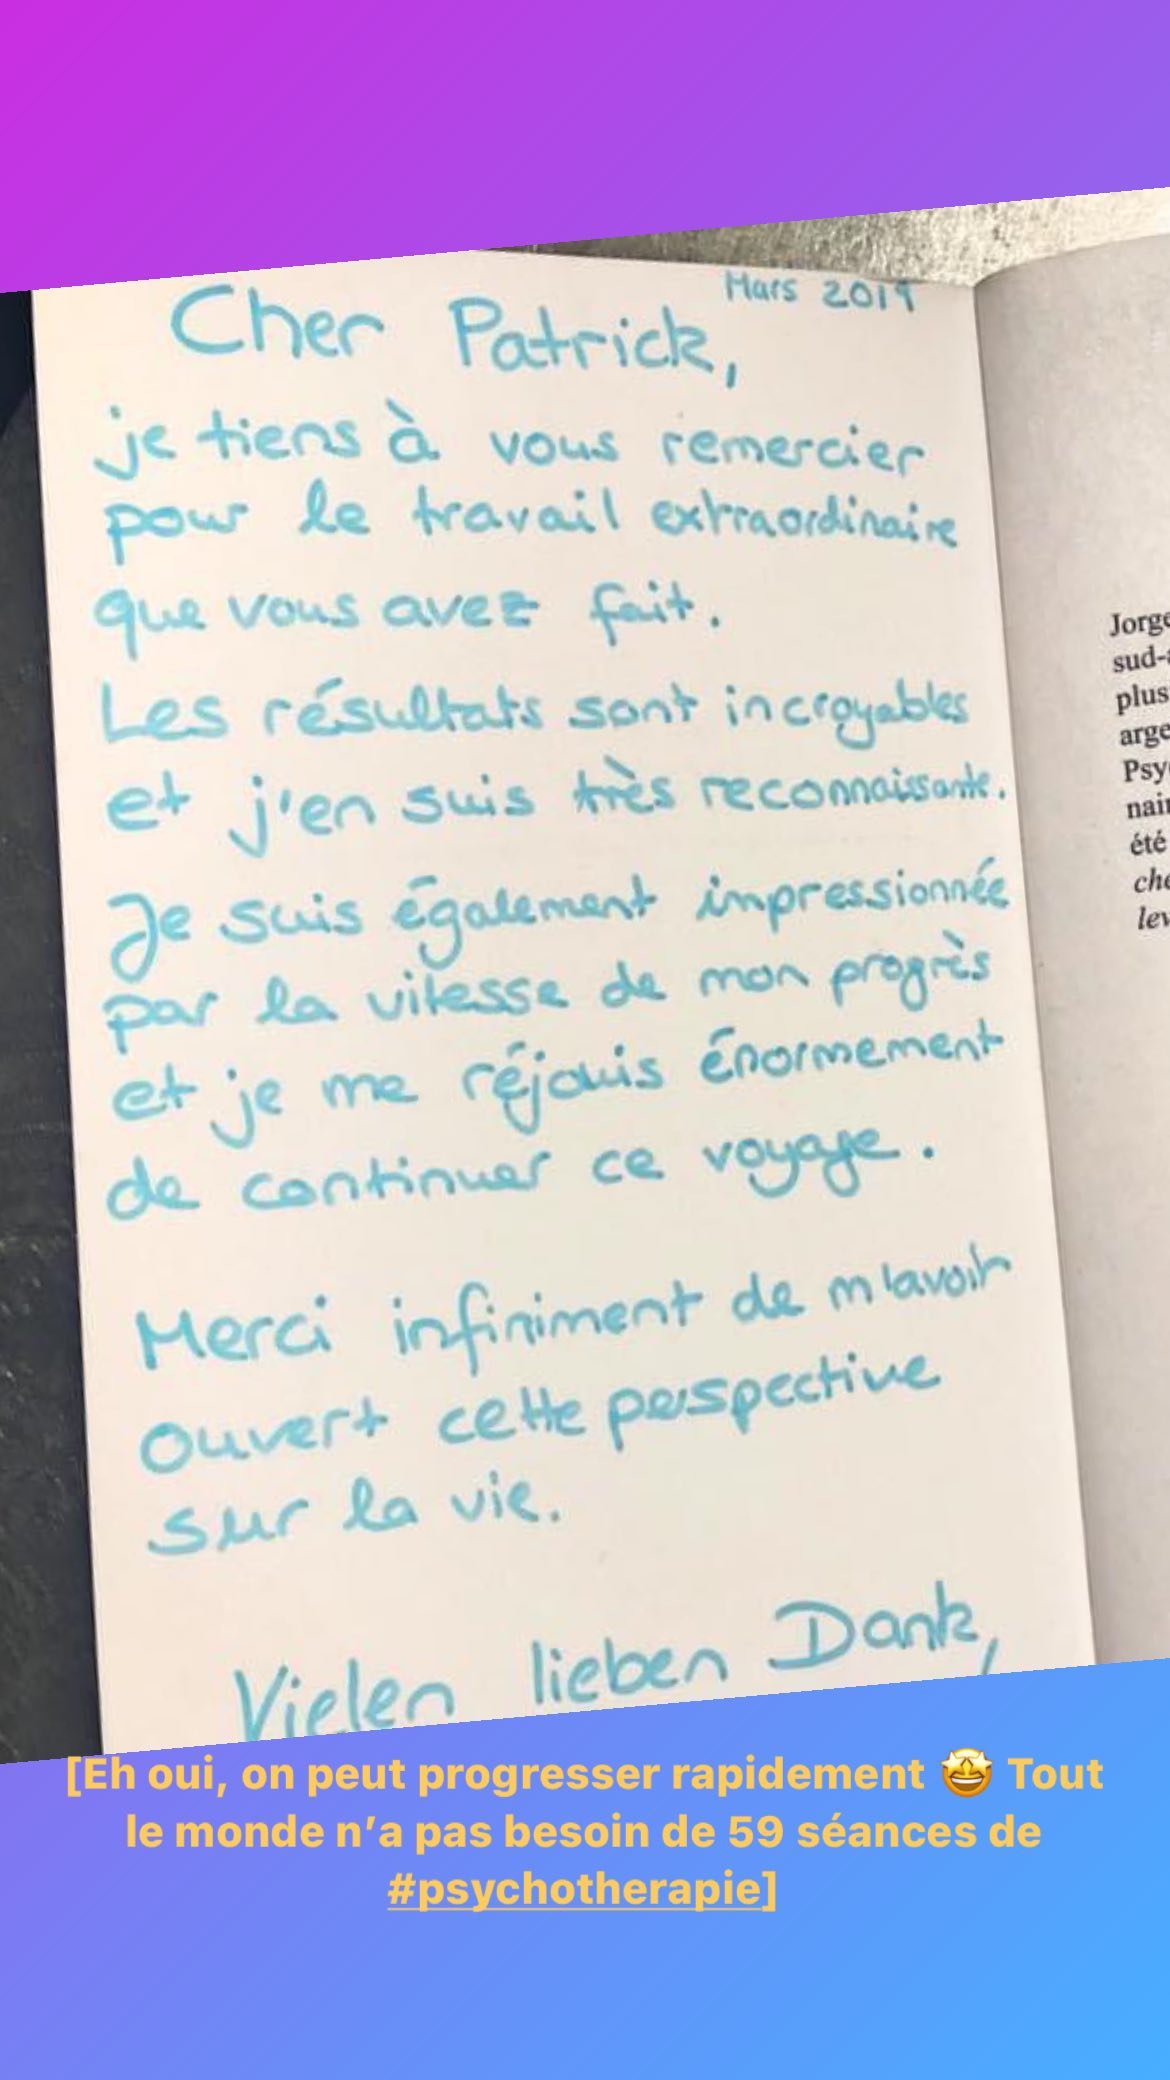 Mars 2019
Cher Patrick,
je tiens à vous remercier
pour le travail extraordinaire
que vous avez fait.
Les résultats sont incroyables
et j'en suis très reconnaissante.
Je suis également impressionnée
par la vitesse de mon progrès
et je me réjouis énormement
de continuer ce voyage.
Merci infiniment de m'avoir
ouvert cette perspective
sur la vie.
Vielen lieben Dank,
Jorge
sud-a
plus
arge
Psy
nair
été
che
lev
[Eh oui, on peut progresser rapidement 🤩 Tout
le monde n’a pas besoin de 59 séances de
#psychotherapie]